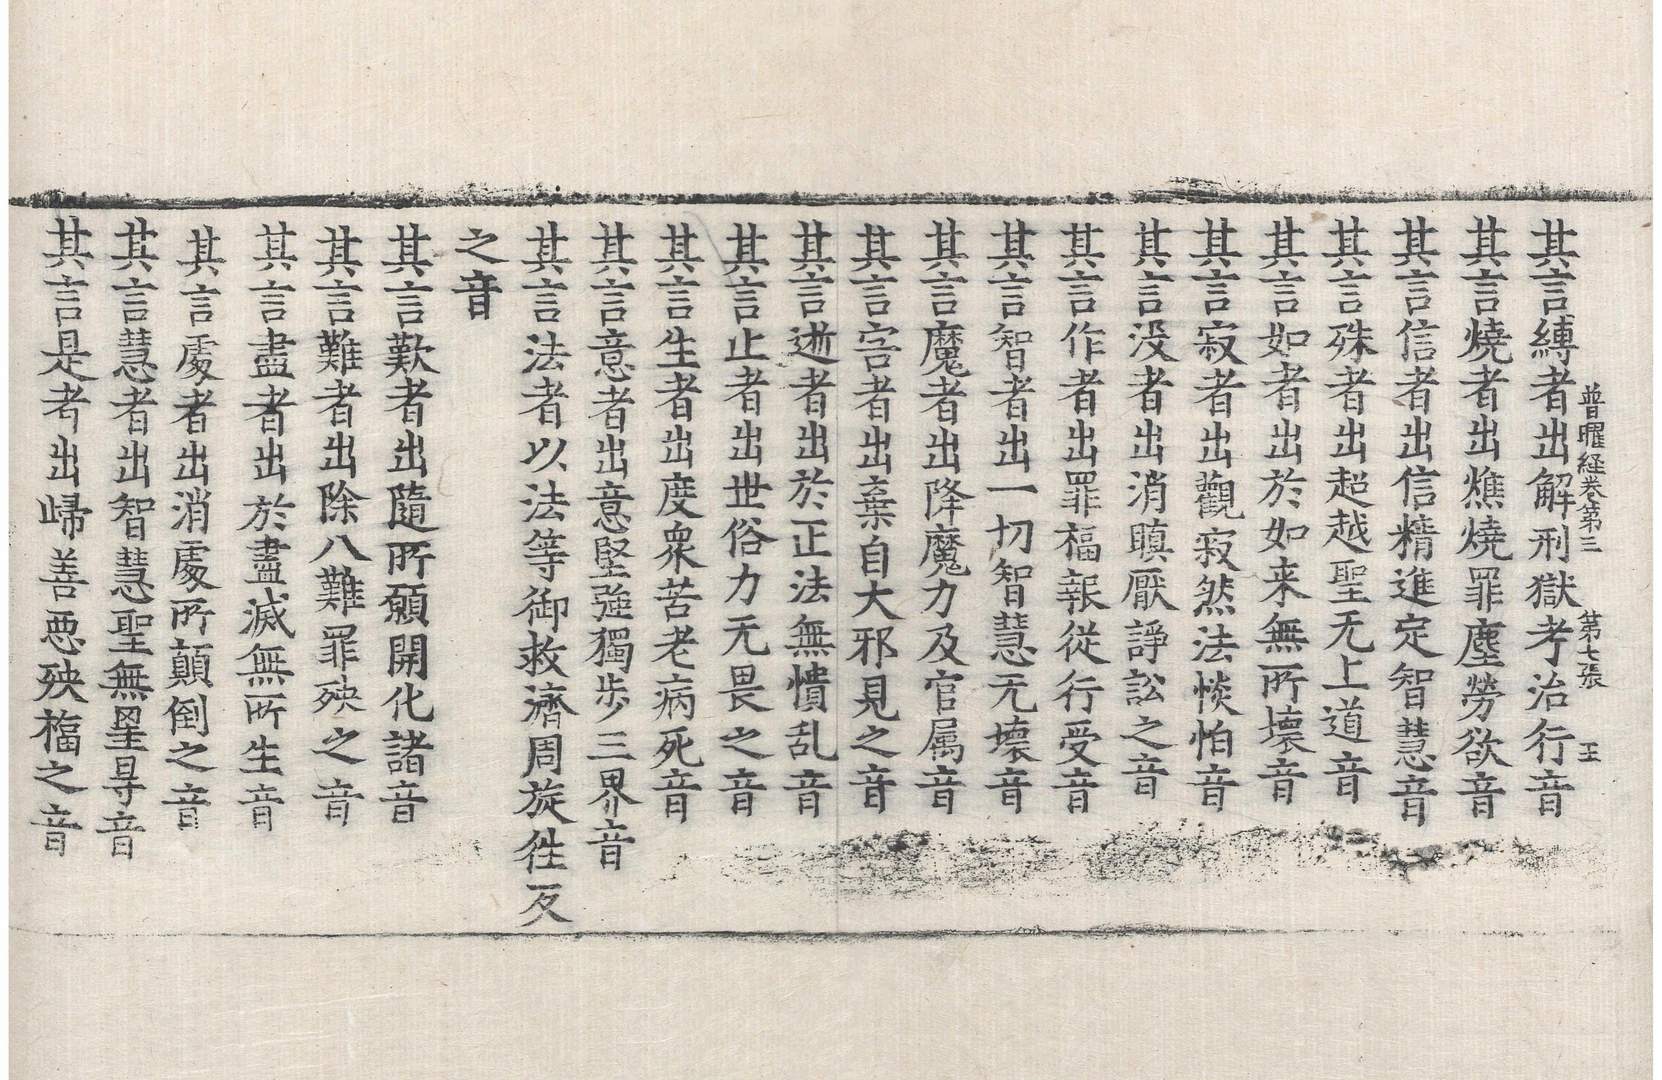 普曜経巻第三 第七張 王
其言縛者出解刑獄考治行音
其言燒者出燋燒罪塵勞欲音
其言信者出信精進定智慧音
其言殊者出超越聖无上道音
其言如者出於如来無所壞音
其言寂者出觀寂然法惔怕音
其言没者出消瞋厭諍訟之音
其言作者出罪福報從行受音
其言智者出一切智慧无壞音
其言魔者出降魔力及官属音
其言害者出棄自大邪見之音
其言逝者出於正法無憒乱音
其言止者出世俗力无畏之音
其言生者出度衆苦老病死音
其言意者出意堅強獨步三界音
其言法者以法等御救濟周旋徃反
之音
其言歎者出隨所願開化諸音
其言難者出除八難罪殃之音
其言盡者出於盡滅無所生音
其言處者出消處所顛倒之音
其言慧者出智慧聖無罣㝵音
其言是者出歸善惡殃福之音